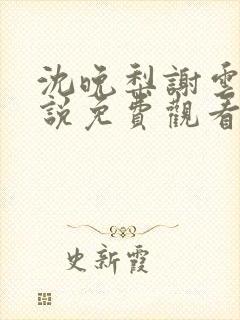 沈晚梨謝雲
說免費觀看
史新霞